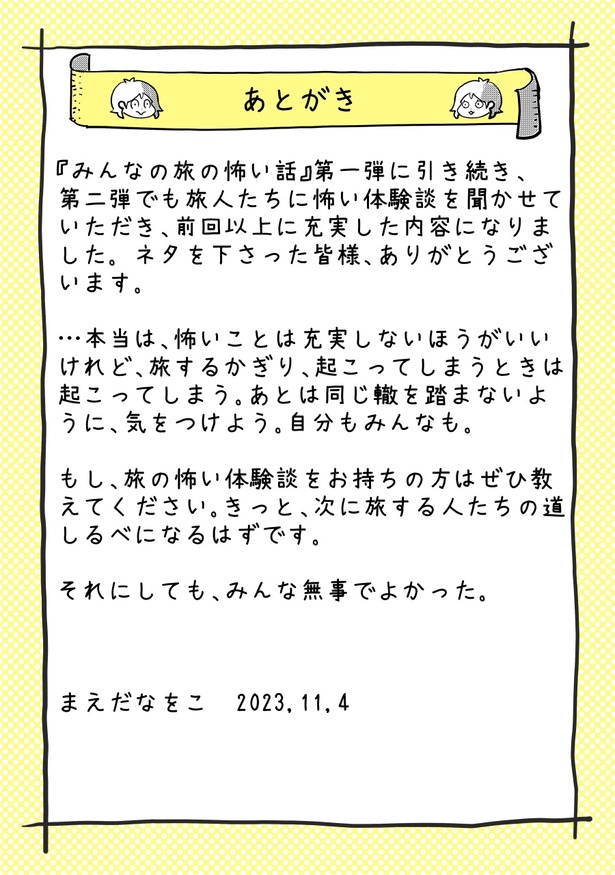 あとがき
『みんなの旅の怖い話』第一弾に引き続き、
第二弾でも旅人たちに怖い体験談を聞かせて
いただき、前回以上に充実した内容になりま
した。 ネタを下さった皆様、ありがとうござ
います。
…本当は、怖いことは充実しないほうがいい
けれど、旅するかぎり、起こってしまうときは
起こってしまう。あとは同じ轍を踏まないよ
うに、気をつけよう。自分もみんなも。
もし、旅の怖い体験談をお持ちの方はぜひ教
えてください。きっと、次に旅する人たちの道
しるべになるはずです。
それにしても、みんな無事でよかった。
まえだなをこ　2023,11,4